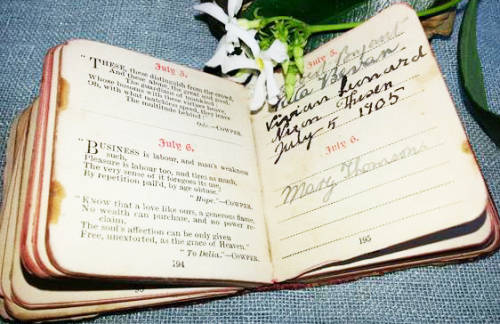 July 5.
"THESE, these distinguish'd from the crowd,
And these alone, the great and good,
The guardians of mankind;
Whose bosoms with these virtues heave,
Oh, with what matchless speed, they leave
The multitude behind!"
Ode.—COWPER.
July 6.
"BUSINESS is labour, and man's weakness
such,
Pleasure is labour too, and tires as much,
The very sense of it foregoes its use,
By repetition pall'd, by age obtuse."
"Hope."—COWPER.
"KNOW that a love like ours, a generous flame,
No wealth can purchase, and no power re-
claim,
The soul's affection can be only given
Free, unextorted, as the grace of Heaven."
"To Delia."—COWPER.
194
July 5.
Bevan.
Vivian Leonard
July 5 1905
July 6.
Mary Thomson
195